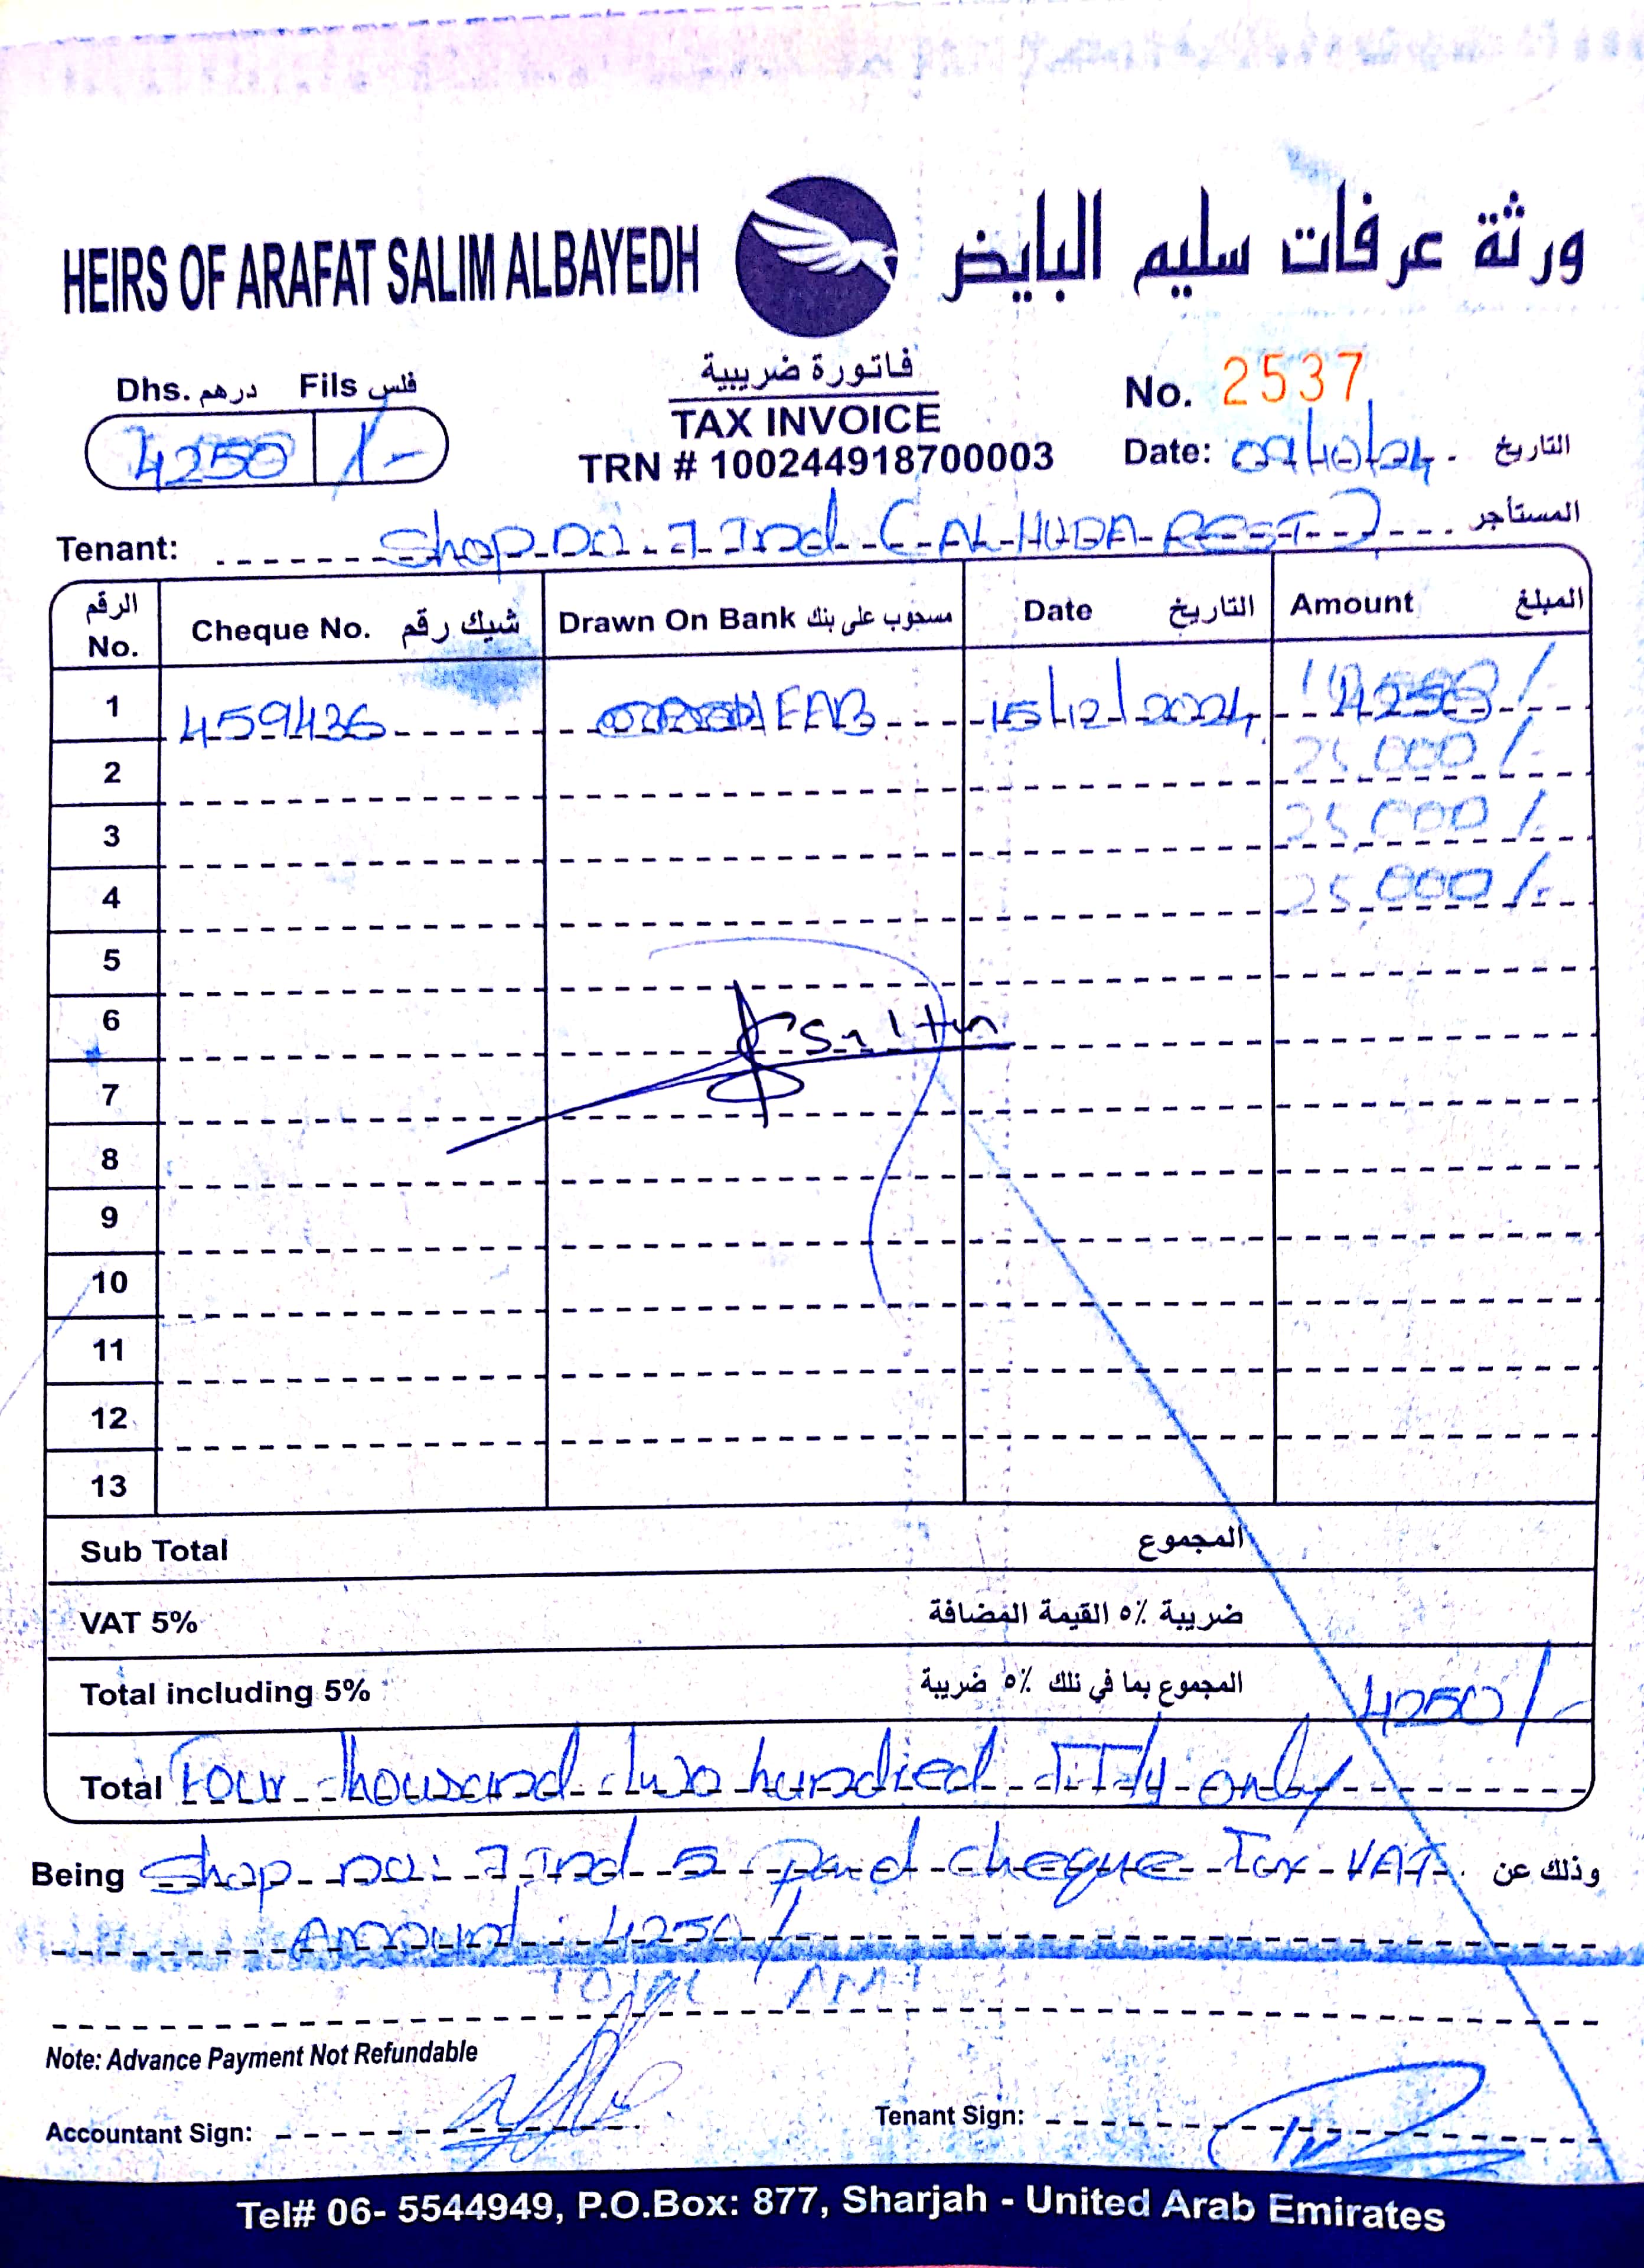 HEIRS OF ARAFAT SALIM ALBAYEDH
ورثة عرفات سليم البايض
Dhs. درهم Fils فلس
4250 /-
فاتورة ضريبية
TAX INVOICE
TRN # 100244918700003
No. 2537
Date: 09/10/24 التاريخ
Tenant: Shop no. 7 Ind (AL-HUDA REST) المستأجر
الرقم No. Cheque No. شيك رقم Drawn On Bank مسحوب على بنك Date التاريخ Amount المبلغ
1 459436 FAB 15/12/2024 4250/-
2 25,000/-
3 25,000/-
4 25,000/-
5
6
7
8
9
10
11
12
13
Sub Total المجموع
VAT 5% ضريبة ٥٪ القيمة المضافة
Total including 5% المجموع بما في ذلك ٥٪ ضريبة 4250/-
Total Four thousand two hundred Fifty only
Being Shop no: 7 Ind 5 paid cheque Tax VAT وذلك عن
Amount: 4250/
TOTAL AMT
Note: Advance Payment Not Refundable
Accountant Sign:
Tenant Sign:
Tel# 06- 5544949, P.O.Box: 877, Sharjah - United Arab Emirates